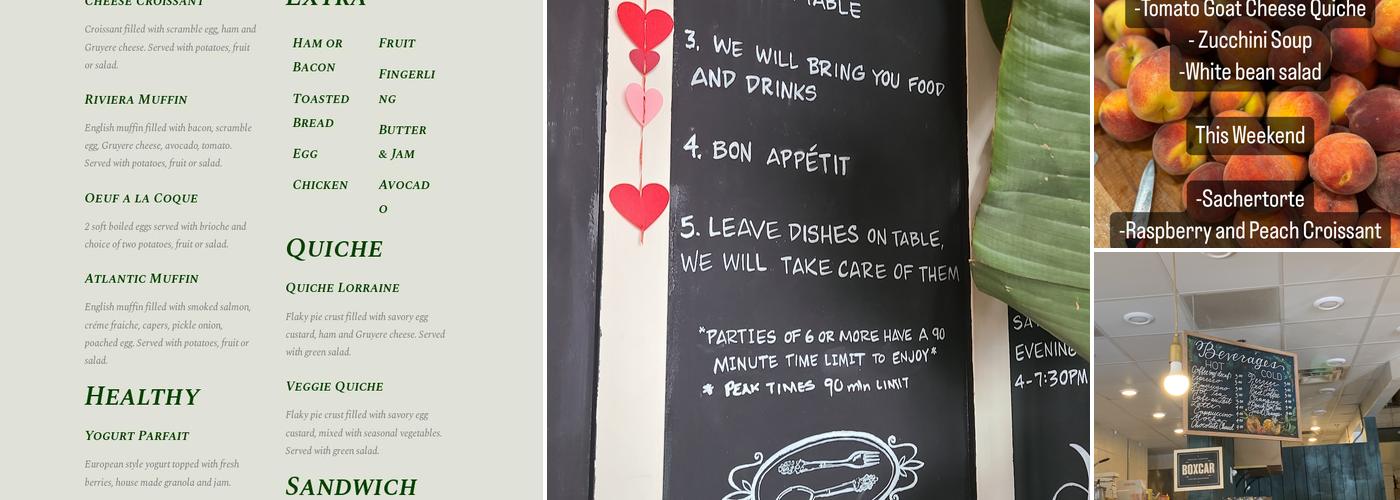 CHEESE CROISSANT
Croissant filled with scramble egg, ham and
Gruyere cheese. Served with potatoes, fruit
or salad.
RIVIERA MUFFIN
English muffin filled with bacon, scramble
egg, Gruyere cheese, avocado, tomato.
Served with potatoes, fruit or salad.
OEUF A LA COQUE
2 soft boiled eggs served with brioche and
choice of two potatoes, fruit or salad.
ATLANTIC MUFFIN
English muffin filled with smoked salmon,
créme fraiche, capers, pickle onion,
poached egg. Served with potatoes, fruit or
salad.
HEALTHY
YOGURT PARFAIT
European style yogurt topped with fresh
berries, house made granola and jam.
EXTRA
HAM OR
BACON
TOASTED
BREAD
EGG
CHICKEN
FRUIT
FINGERLI
NG
BUTTER
& JAM
AVOCAD
O
QUICHE
QUICHE LORRAINE
Flaky pie crust filled with savory egg
custard, ham and Gruyere cheese. Served
with green salad.
VEGGIE QUICHE
Flaky pie crust filled with savory egg
custard, mixed with seasonal vegetables.
Served with green salad.
SANDWICH
TABLE
3. WE WILL BRING YOU FOOD
AND DRINKS
4. BON APPÉTIT
5. LEAVE DISHES ON TABLE,
WE WILL TAKE CARE OF THEM
*PARTIES OF 6 OR MORE HAVE A 90
MINUTE TIME LIMIT TO ENJOY*
* PEAK TIMES 90 min LIMIT
EVENING
4-7:30PM
-Tomato Goat Cheese Quiche
- Zucchini Soup
-White bean salad
This Weekend
-Sachertorte
-Raspberry and Peach Croissant
Beverages
HOT
COLD
Espresso
Cappuccino
Mocha
BOXCAR